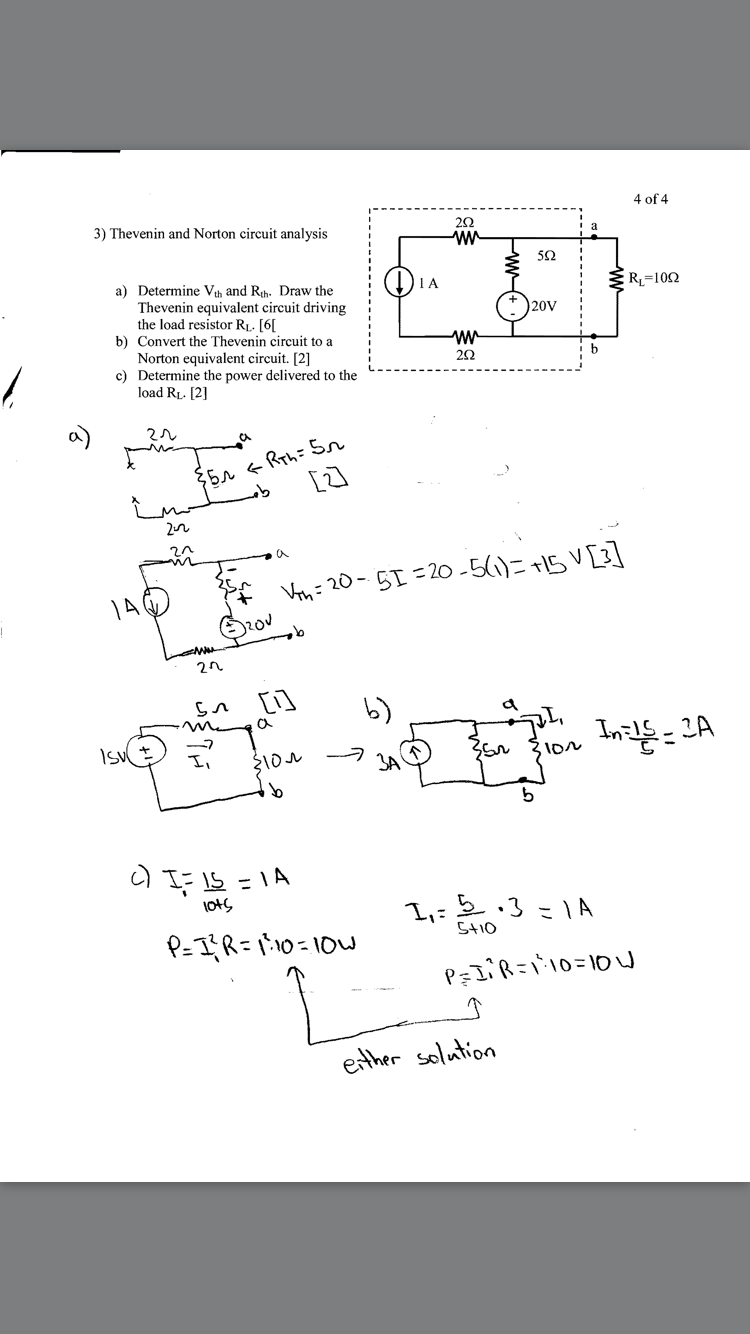 4 of 4
3) Thevenin and Norton circuit analysis
a) Determine Vth and Rth. Draw the
Thevenin equivalent circuit driving
the load resistor RL. [6[
b) Convert the Thevenin circuit to a
Norton equivalent circuit. [2]
c) Determine the power delivered to the
load RL. [2]
2Ω
a
5Ω
1 A
RL=10Ω
+
20V
-
2Ω
b
a)
2Ω
a
5Ω ← RTh = 5Ω
[2]
b
2Ω
2Ω
a
-
5Ω
+
VTh = 20 - 5I = 20 - 5(1) = +15 V [3]
1A
± 20V
b
2Ω
5Ω [1]
a
15V ±
I1
10Ω
b
→
b)
a
I1
3A
5Ω
10Ω
b
In = 15/5 = 3A
c) I1 = 15/10+5 = 1A
P = I1²R = 1²·10 = 10W
I1 = 5/5+10 · 3 = 1A
P = I1²R = 1²·10 = 10W
either solution